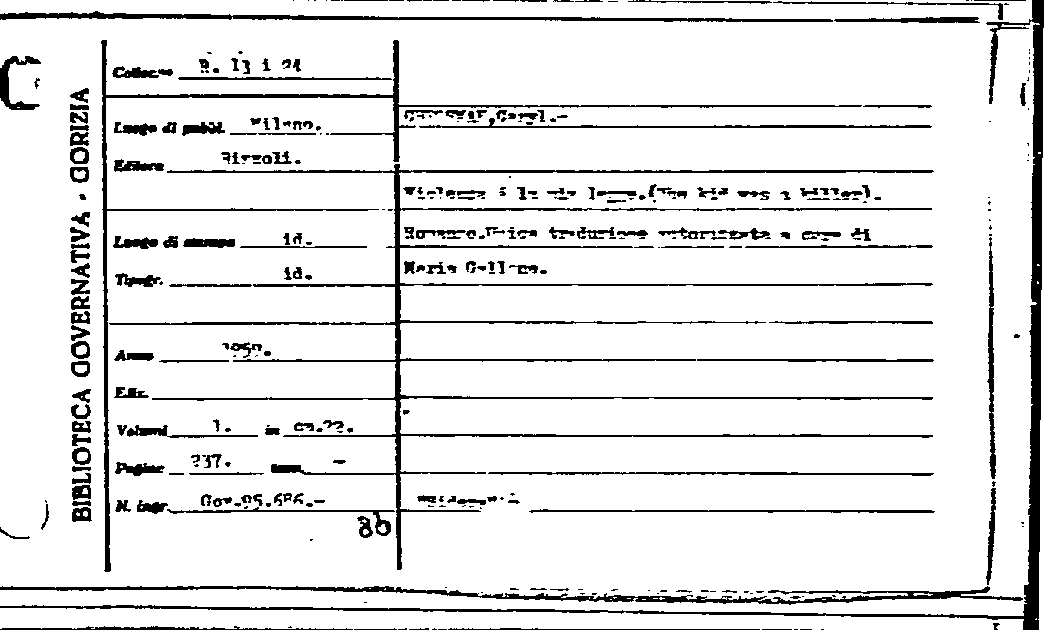 BIBLIOTECA GOVERNATIVA - GORIZIA
Colloc.ne R. 13 i 24
Luogo di pubbl. Milano.
Editore Rizzoli.
Luogo di stampa id.
Tipogr. id.
Anno
Ediz.
Volumi 1. in cm.22.
Pagine 237. tavv. -
N. ingr. Gov.95.686.-
CHESSMAN,Caryl.-
Violenza è la mia legge.(The kid was a killer).
Romanzo.Unica traduzione autorizzata a cura di
Maria Gallone.